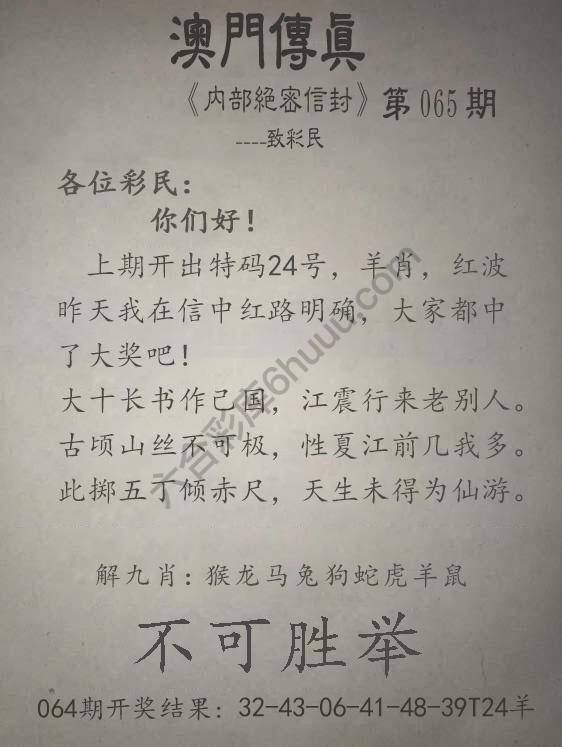 澳門傳眞
《内部絕密信封》第065期
----致彩民
各位彩民：
你们好！
上期开出特码24号，羊肖，红波
昨天我在信中红路明确，大家都中
了大奖吧！
大十长书作己国，江震行来老别人。
古顷山丝不可极，性夏江前几我多。
此掷五丁倾赤尺，天生未得为仙游。
解九肖：猴龙马兔狗蛇虎羊鼠
不可胜举
064期开奖结果：32-43-06-41-48-39T24羊
六合彩库6huuu.com